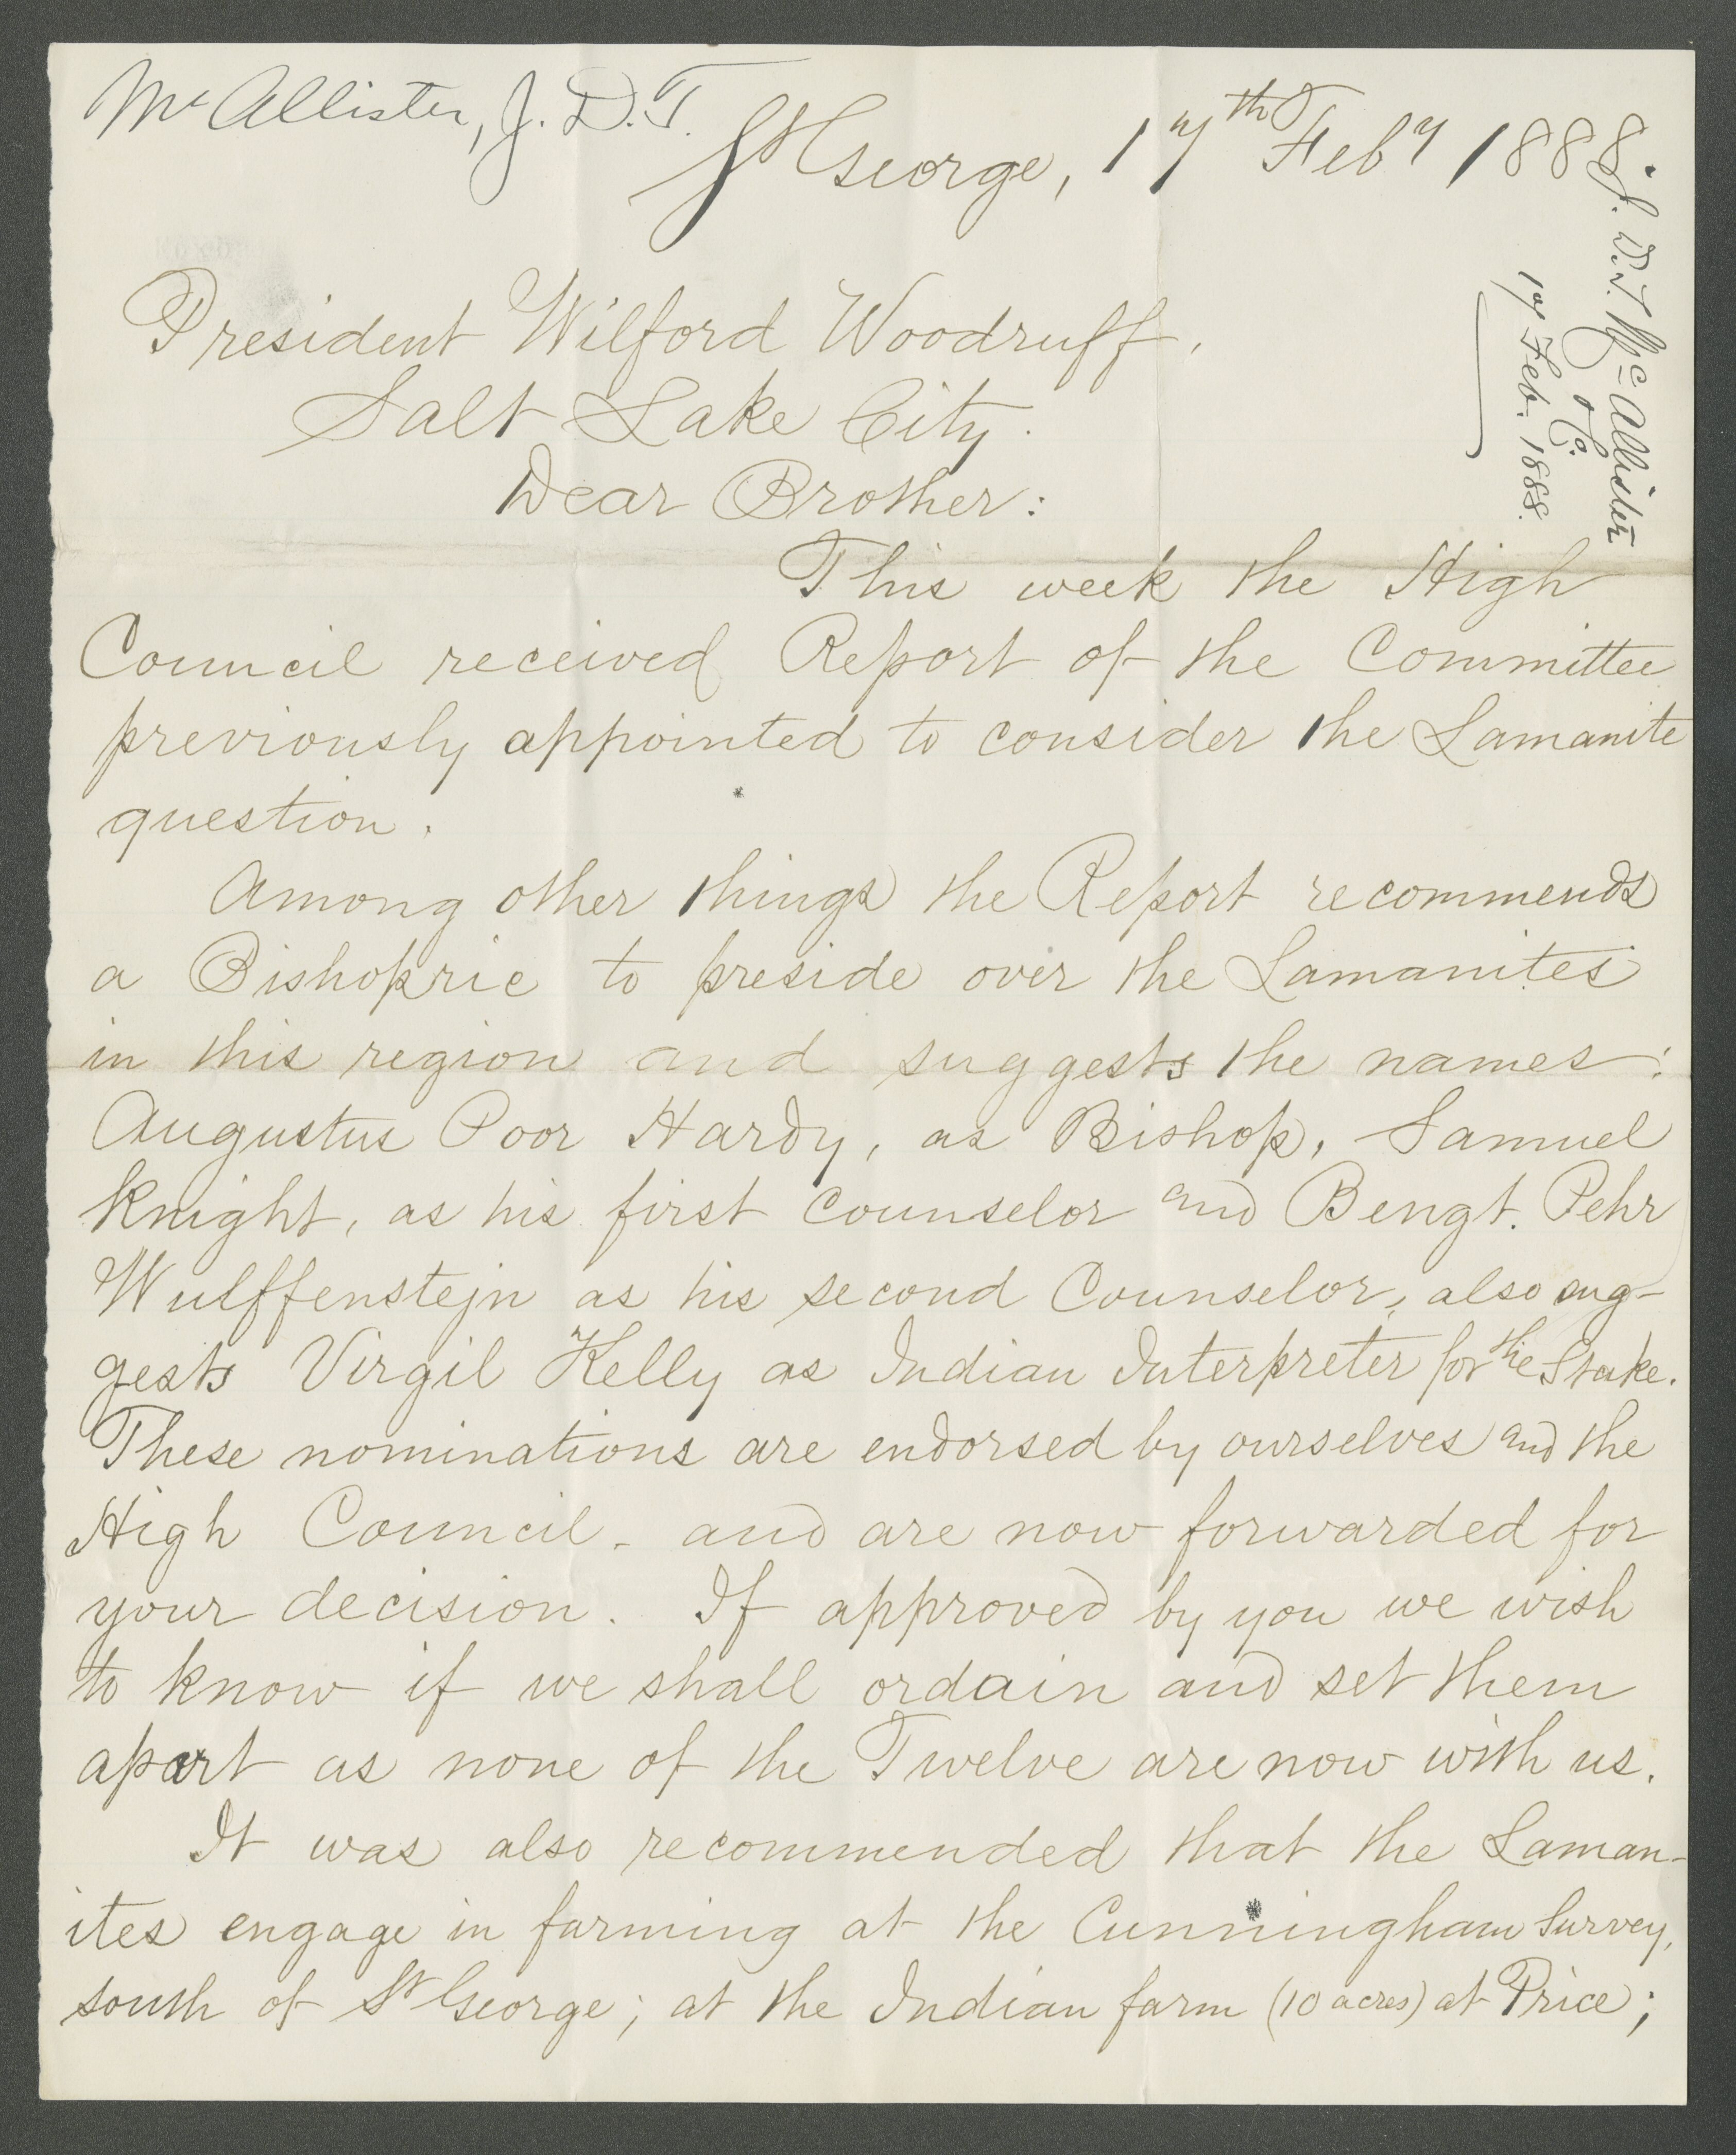 McAllister, J. D. T.
St George, 17th Feby 1888.
J. D. T. McAllister
& C.
17 Feb. 1888.
President Wilford Woodruff,
Salt Lake City.
Dear Brother:
This week the High
Council received Report of the Committee
previously appointed to consider the Lamanite
question.
Among other things the Report recommends
a Bishopric to preside over the Lamanites
in this region and suggests the names:
Augustus Poor Hardy, as Bishop, Samuel
Knight, as his first Counselor and Bengt. Pehr
Wulffenstejn as his second Counselor, also sug-
gests Virgil Kelly as Indian Interpreter for the Stake.
These nominations are endorsed by ourselves and the
High Council - and are now forwarded for
your decision. If approved by you we wish
to know if we shall ordain and set them
apart as none of the Twelve are now with us.
It was also recommended that the Laman-
ites engage in farming at the Cunningham Survey,
south of St George; at the Indian farm (10 acres) at Price;